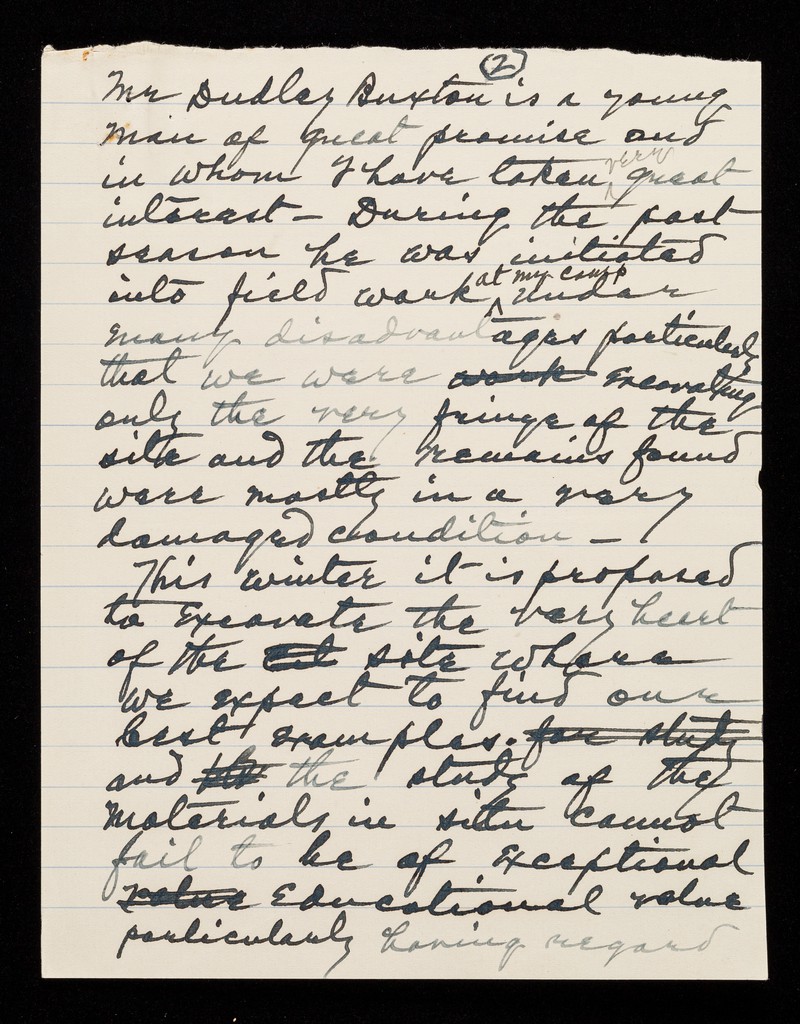 (2)
Mr Dudley Buxton is a young
man of great promise and
in whom I have taken very great
interest – During the past
season he was initiated
into field work at my camp under
many disadvantages particularly
that we were work excavating
only the very fringe of the
site and the remains found
were mostly in a very
damaged condition –
This winter it is proposed
to excavate the very heart
of the site where
we expect to find our
best examples. for study
and the study of the
materials in situ cannot
fail to be of exceptional
value educational value
particularly having regard